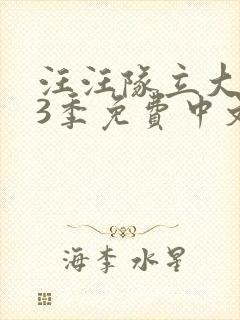 汪汪隊立大
3季免費中文
海李 水星